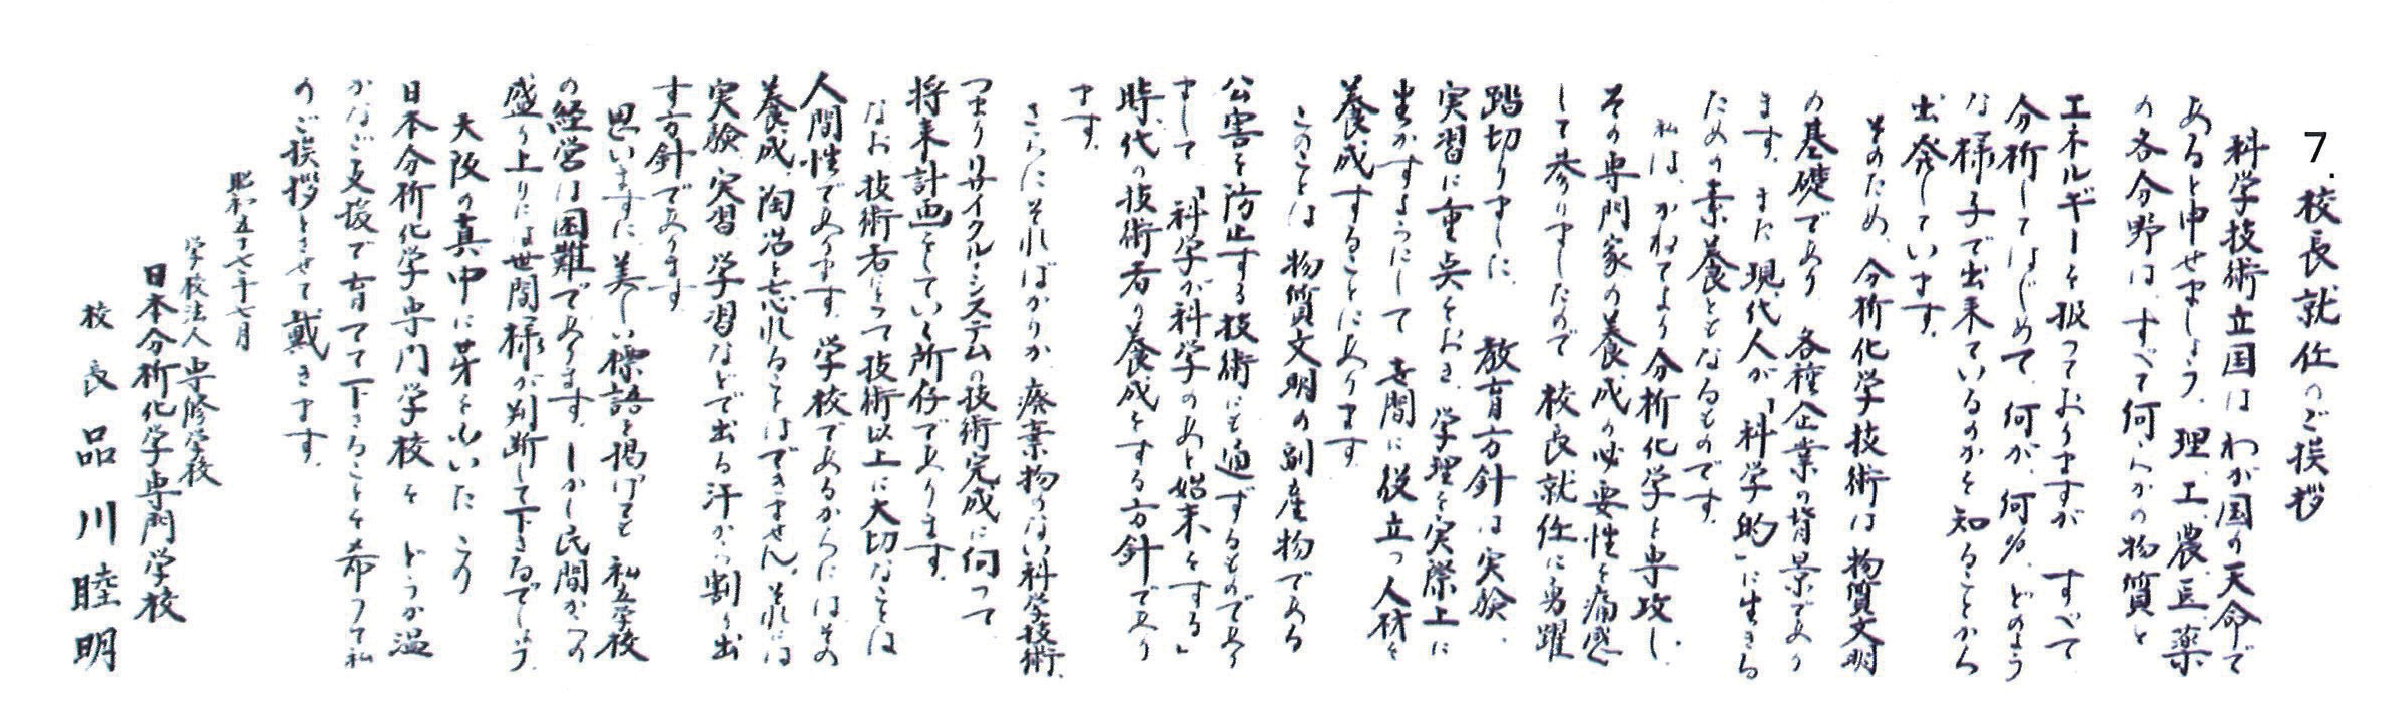 7. 校長就任のご挨拶
科学技術立国はわが国の天命で
あると申せましょう。理、工、農、医、薬
の各分野は、すべて何らかの物質と
エネルギーを扱っておりますが すべて
分析してはじめて、何が、何%、どのよう
な様子で出来ているのかを知ることから
出発しています。
そのため、分析化学技術は物質文明
の基礎であり 各種企業の背景であり
ます。また現代人が「科学的」に生きる
ための素養ともなるものです。
私は、かねてより分析化学を専攻し、
その専門家の養成の必要性を痛感
して参りましたので 校長就任に勇躍
踏切りました。 教育方針は実験、
実習に重点をおき、学理を実際上に
生かすようにして 世間に役立つ人材を
養成することにあります。
このことは 物質文明の副産物である
公害を防止する技術にも通ずるものであり
まして 「科学が科学のあと始末をする」
時代の技術者の養成をする方針であり
ます。
さらにそればかりか 廃棄物のない科学技術、
つまりリサイクル・システムの技術完成に向って
将来計画をしている所存であります。
なお、技術者にとって技術以上に大切なことは
人間性であります。学校であるからにはその
養成、陶冶を忘れることはできません。それには
実験、実習、学習などで出る汗から割り出
す方針であります。
思いますに、美しい標語を掲げても 私立学校
の経営は困難であります。しかし民間からの
盛り上りには世間様が判断して下さるでしょう。
大阪の真中に芽を吹いた この
日本分析化学専門学校を どうか温
かなご支援で育てて下さることを希って私
のご挨拶とさせて戴きます。
昭和五十七年七月
学校法人 専修学校
日本分析化学専門学校
校長 品川睦明